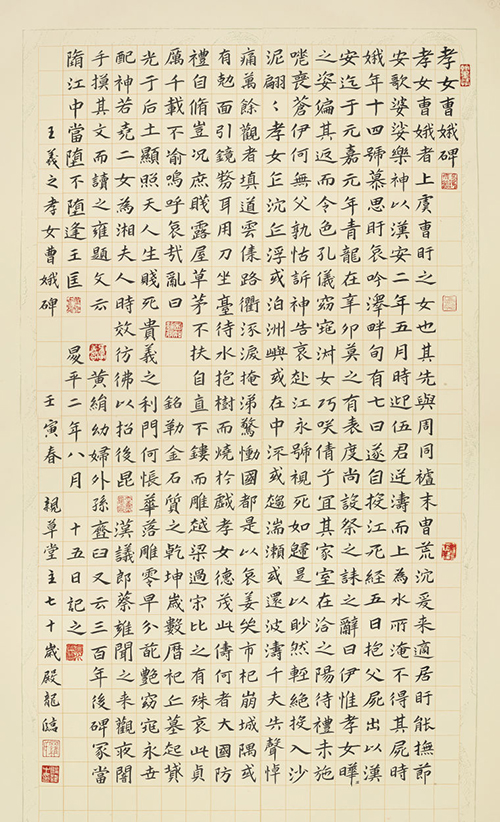 孝女曹娥碑
孝女曹娥者上虞曹盱之女也其先與周同櫨末胄荒沉爰来適居盱能撫節
安歌婆娑樂神以漢安二年五月時迎伍君逆濤而上為水所淹不得其屍時
娥年十四號慕思盱哀吟澤畔旬有七日遂自投江死経五日抱父屍出以漢
安迄于元嘉元年青龍在辛卯莫之有表度尚設祭之誄之辭曰伊惟孝女曄
之姿偏其返而令色孔儀窈窕淑女巧咲倩兮宜其家室在洽之陽待禮未施
嗟喪蒼伊何無父孰怙訴神告哀赴江永號視死如歸是以眇然輕絶投入沙
泥翩々孝女乍沉乍浮或泊洲嶼或在中流或趨湍瀬或還波濤千夫失聲悼
痛萬餘觀者填道雲集路衢泺淚掩涕驚慟國都是以哀姜哭市杞崩城隅或
有尅面引鏡剺耳用刀坐臺待水抱樹而燒扵戯孝女德茂此儔何者大國防
禮自脩豈况庶賤露屋草茅不扶自直不鏤而雕越梁過宋比之有殊哀此貞
厲千載不渝嗚呼哀哉亂曰 銘勒金石質之乾坤歲數曆祀丘墓起墳
光于后土顯照天人生賤死貴義之利門何悵華落雕零早分葩艷窈窕永世
配神若堯二女為湘夫人時效彷彿以招後昆 漢議郎蔡雍聞之来觀夜闇
手摸其文而讀之雍題文云 黃絹幼婦外孫齏臼又云三百年後碑冢當
墮江中當墮不墮逢王叵 昇平二年八月 十五日記之
王羲之孝女曹娥碑 壬寅春 草堂主七十歲殿龍臨